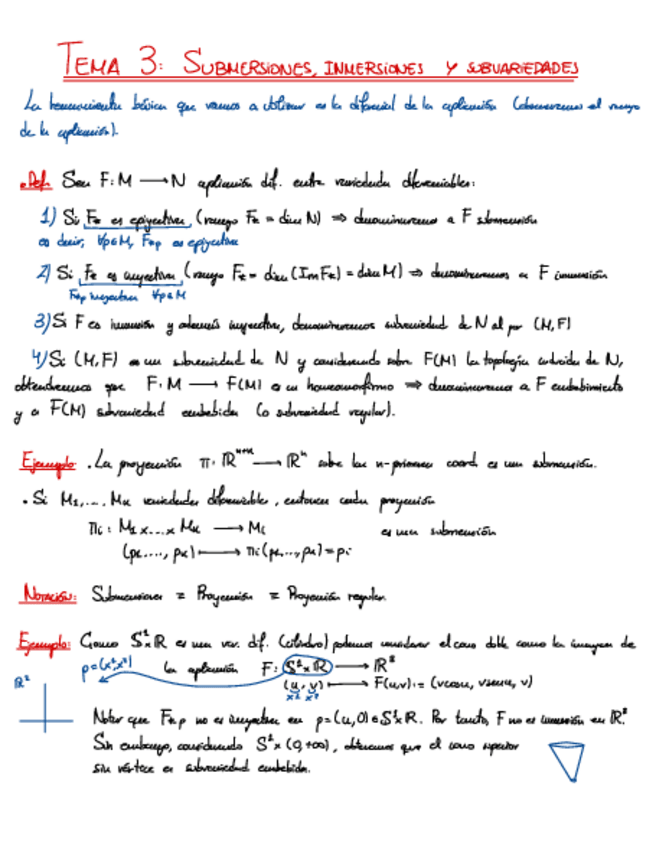 TEMA 3: SUBMERSIONES, INMERSIONES Y SUBVARIEDADES
La herramienta básica que vamos a utilizar es la diferencial de la aplicación (observaremos el rango
de la aplicación).
Def. Sea F: M → N aplicación dif. entre variedades diferenciables:
1) Si F* es epiyectiva, (rango F* = dim N) ⇒ denominaremos a F submersión
es decir, ∀p∈M, F*p es epiyectiva
2) Si F* es inyectiva (rango F* = dim (Im F*) = dim M) ⇒ denominaremos a F inmersión
F*p inyectiva ∀p∈M
3) Si F es inmersión y además inyectiva, denominaremos subvariedad de N al par (M, F)
4) Si (M, F) es una subvariedad de N y considerando sobre F(M) la topología inducida de N,
obtendremos que F: M → F(M) es un homeomorfismo ⇒ denominaremos a F embebimiento
y a F(M) subvariedad embebida (o subvariedad regular).
Ejemplo: . La proyección π: ℝⁿ⁺ᵏ → ℝⁿ sobre las n-primeras coord. es una submersión.
. Si M₁, ..., Mₖ variedades diferenciables, entonces cada proyección
πᵢ: M₁ x ... x Mₖ → Mᵢ es una submersión
(p₁, ..., pₖ) ↦ πᵢ(p₁, ..., pₖ) = pᵢ
NOTACIÓN: Submersiones = Proyección = Proyección regular.
Ejemplo: Como S¹xℝ es una var. dif. (cilindro) podemos considerar el cono doble como la imagen de
ℝ² p=(x¹,x²) la aplicación F: S¹xℝ → ℝ³
(u, v) ↦ F(u,v) := (vcosu, vsenu, v)
x¹ x²
Notar que F*p no es inyectiva en p=(u,0)∈S¹xℝ. Por tanto, F no es inmersión en ℝ³.
Sin embargo, considerando S¹x(0,+∞), obtenemos que el cono superior
sin vértice es subvariedad embebida.